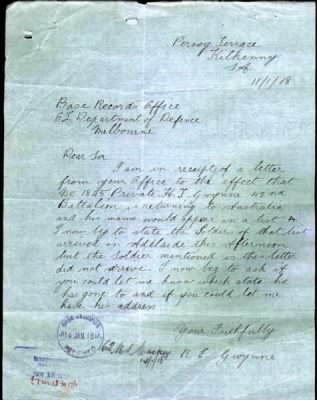 Percy Terrace
Kilkenny
S.A
11/1/18
Base Records Office
Department of Defence
Melbourne
Dear Sir
I am in receipt of a letter
from your Office to the effect that
No 1845 Private H. J. Gwynne 42nd
Battalion is returning to Australia
and his name would appear in a list
I now beg to state the Soldiers of that list
arrived in Adelaide this Afternoon
but the Soldier mentioned in the letter
did not arrive. I now beg to ask if
you could let me know which state he
has gone to and if you could let me
have his address
Your Faithfully
R E Gwynne
14 JAN 1918